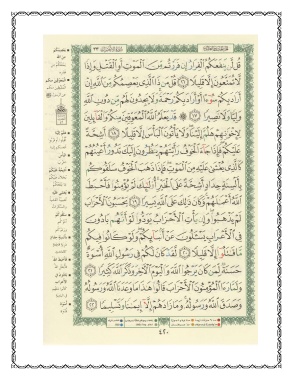 قُل لَّن يَنفَعَكُمُ ٱلْفِرَارُ إِن فَرَرْتُم مِّنَ ٱلْمَوْتِ أَوِ ٱلْقَتْلِ وَإِذًا
لَّا تُمَتَّعُونَ إِلَّا قَلِيلًا ١٦ قُلْ مَن ذَا ٱلَّذِى يَعْصِمُكُم مِّنَ ٱللَّهِ إِنْ
أَرَادَ بِكُمْ سُوٓءًا أَوْ أَرَادَ بِكُمْ رَحْمَةً وَلَا يَجِدُونَ لَهُم مِّن دُونِ ٱللَّهِ
وَلِيًّا وَلَا نَصِيرًا ١٧ قَدْ يَعْلَمُ ٱللَّهُ ٱلْمُعَوِّقِينَ مِنكُمْ وَٱلْقَآئِلِينَ
لِإِخْوَٰنِهِمْ هَلُمَّ إِلَيْنَا وَلَا يَأْتُونَ ٱلْبَأْسَ إِلَّا قَلِيلًا ١٨ أَشِحَّةً
عَلَيْكُمْ فَإِذَا جَآءَ ٱلْخَوْفُ رَأَيْتَهُمْ يَنظُرُونَ إِلَيْكَ تَدُورُ أَعْيُنُهُمْ
كَٱلَّذِى يُغْشَىٰ عَلَيْهِ مِنَ ٱلْمَوْتِ فَإِذَا ذَهَبَ ٱلْخَوْفُ سَلَقُوكُم
بِأَلْسِنَةٍ حِدَادٍ أَشِحَّةً عَلَى ٱلْخَيْرِ أُو۟لَٰٓئِكَ لَمْ يُؤْمِنُوا۟ فَأَحْبَطَ
ٱللَّهُ أَعْمَٰلَهُمْ وَكَانَ ذَٰلِكَ عَلَى ٱللَّهِ يَسِيرًا ١٩ يَحْسَبُونَ ٱلْأَحْزَابَ
لَمْ يَذْهَبُوا۟ وَإِن يَأْتِ ٱلْأَحْزَابُ يَوَدُّوا۟ لَوْ أَنَّهُم بَادُونَ
فِى ٱلْأَعْرَابِ يَسْـَٔلُونَ عَنْ أَنۢبَآئِكُمْ وَلَوْ كَانُوا۟ فِيكُم
مَّا قَٰتَلُوٓا۟ إِلَّا قَلِيلًا ٢٠ لَّقَدْ كَانَ لَكُمْ فِى رَسُولِ ٱللَّهِ أُسْوَةٌ
حَسَنَةٌ لِّمَن كَانَ يَرْجُوا۟ ٱللَّهَ وَٱلْيَوْمَ ٱلْـَٔاخِرَ وَذَكَرَ ٱللَّهَ كَثِيرًا ٢١
وَلَمَّا رَءَا ٱلْمُؤْمِنُونَ ٱلْأَحْزَابَ قَالُوا۟ هَٰذَا مَا وَعَدَنَا ٱللَّهُ وَرَسُولُهُۥ
وَصَدَقَ ٱللَّهُ وَرَسُولُهُۥ وَمَا زَادَهُمْ إِلَّآ إِيمَٰنًا وَتَسْلِيمًا ٢٢
٤٢٠